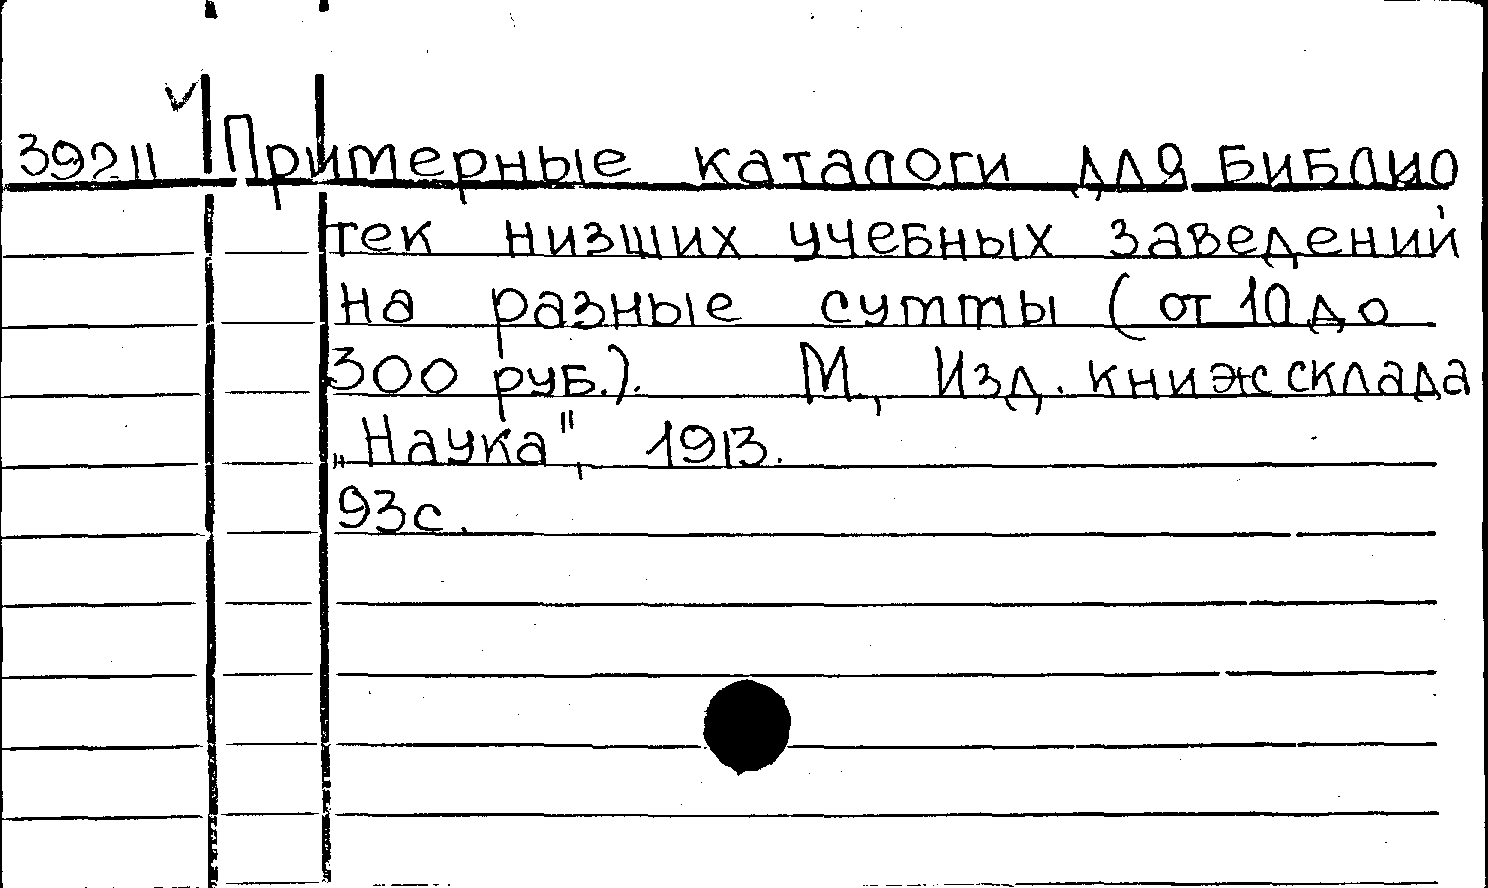 39211 Примерные каталоги для библио
тек низших учебных заведений
на разные суммы (от 10 до
300 руб.). М, Изд. книж склада
„Наука", 1913.
93с.